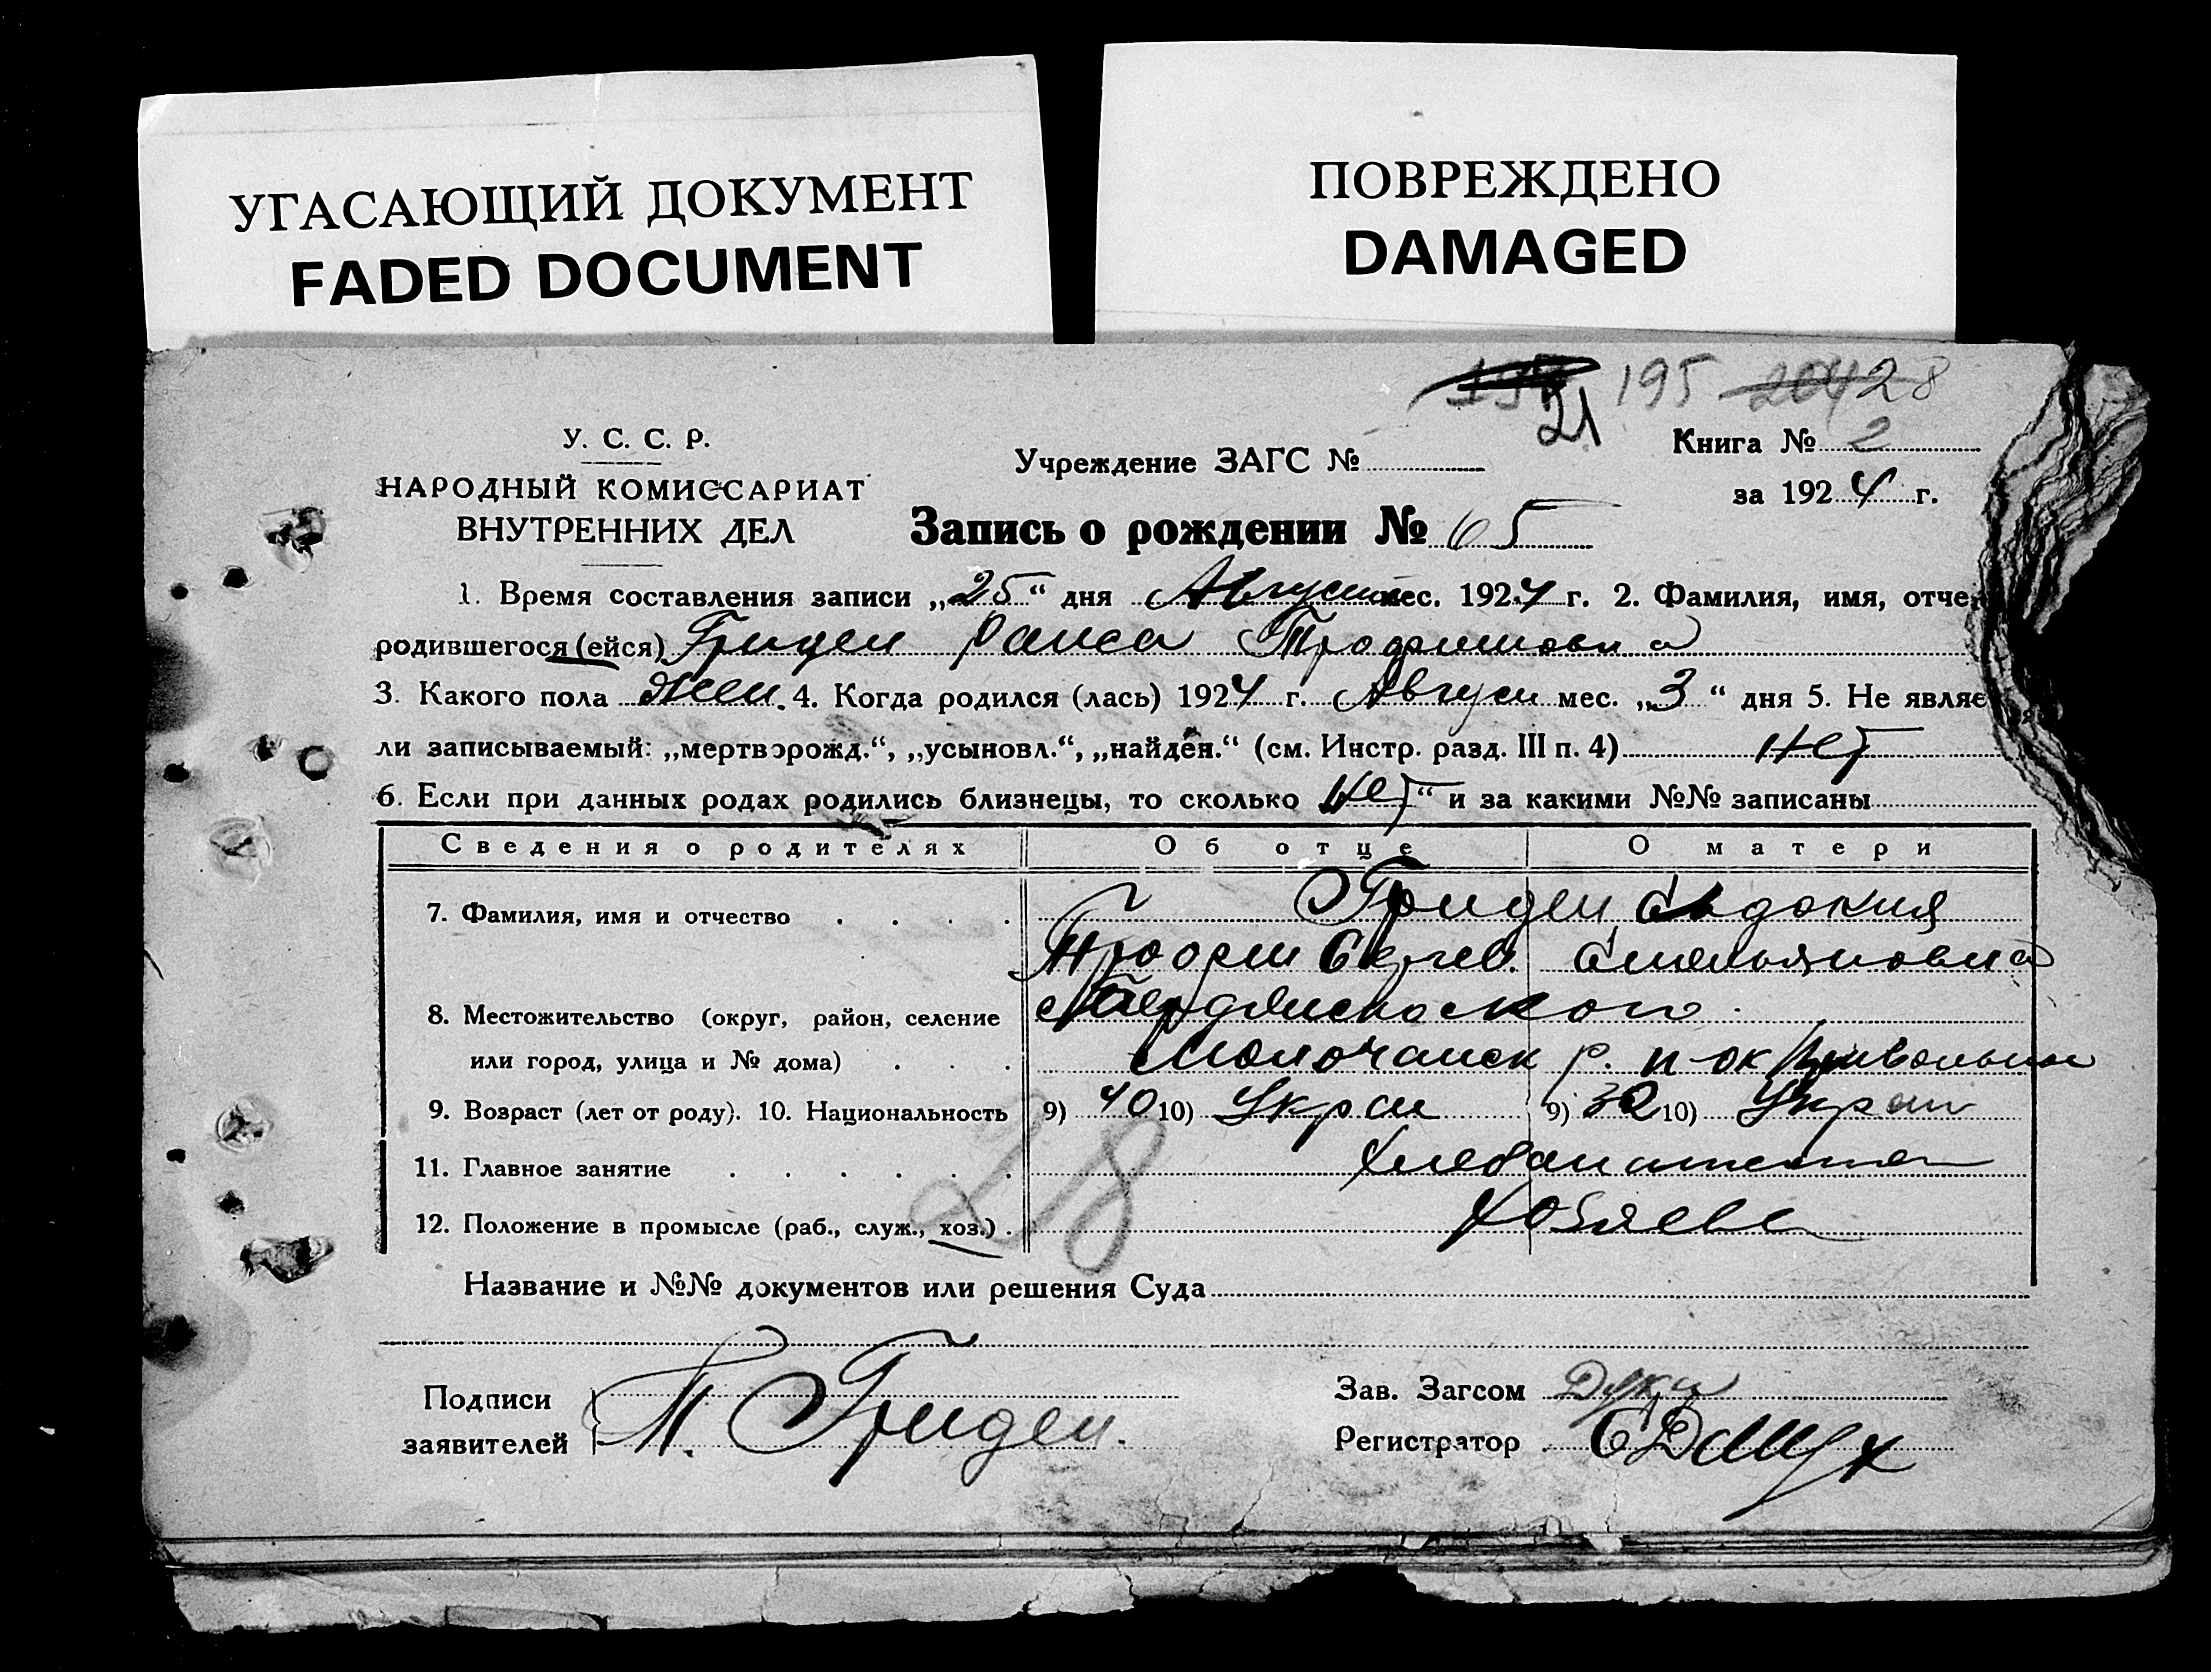 УГАСАЮЩИЙ ДОКУМЕНТ
FADED DOCUMENT
ПОВРЕЖДЕНО
DAMAGED
195 28
21
У. С. С. Р.
НАРОДНЫЙ КОМИССАРИАТ
ВНУТРЕННИХ ДЕЛ
Учреждение ЗАГС №
Книга № 2
за 1924 г.
Запись о рождении № 65
1. Время составления записи „25“ дня Август мес. 1924 г. 2. Фамилия, имя, отче
родившегося (ейся) Гриден Раиса Трофимовна
3. Какого пола жен. 4. Когда родился (лась) 1924 г. Август мес. „3“ дня 5. Не являе
ли записываемый: „мертворожд.“, „усыновл.“, „найден.“ (см. Инстр. разд. III п. 4) нет
6. Если при данных родах родились близнецы, то сколько нет “ и за какими №№ записаны
Сведения о родителях Об отце О матери
7. Фамилия, имя и отчество Гриден Евдокия
Трофим Сергев. Емельяновна
8. Местожительство (округ, район, селение
или город, улица и № дома) Молочанск р. п-ок
9. Возраст (лет от роду). 10. Национальность 9) 40 10) Укра 9) 32 10) Укра
11. Главное занятие
12. Положение в промысле (раб., служ., хоз.)
28
Название и №№ документов или решения Суда
Подписи
заявителей Т. Гриден.
Зав. Загсом
Регистратор